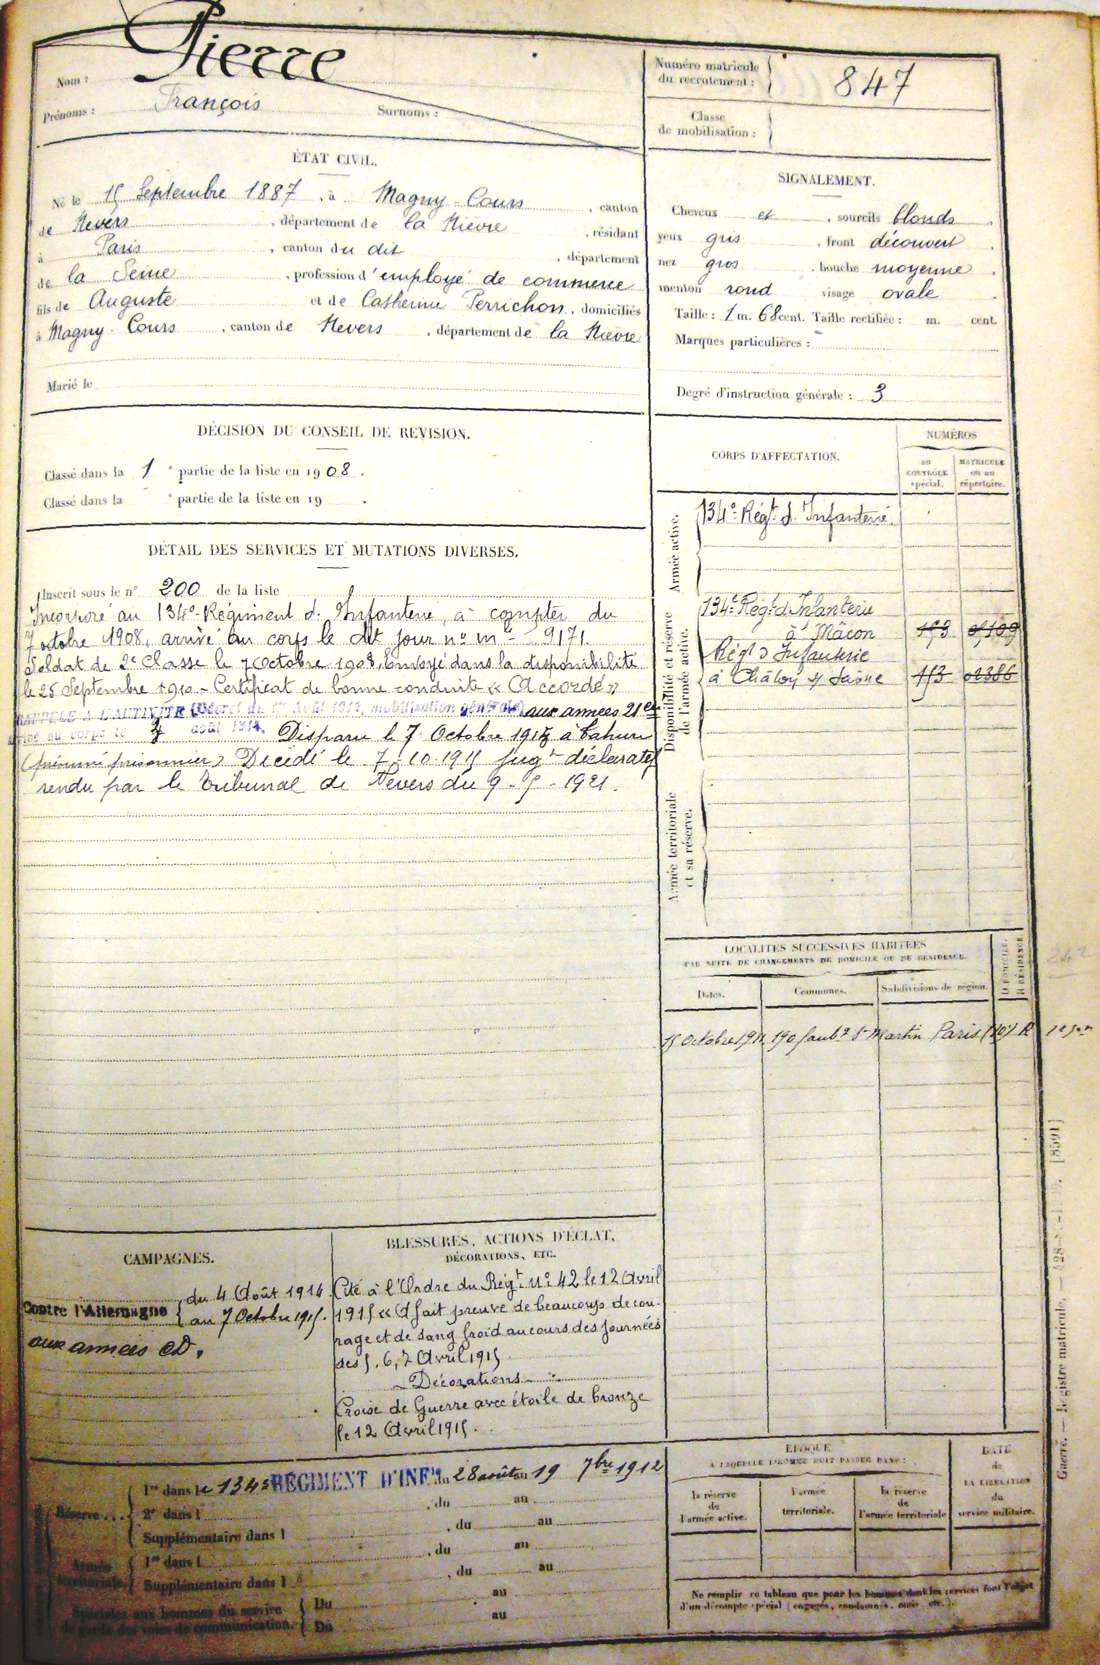 Nom : Pierre
Prénoms : François Surnoms :
Numéro matricule du recrutement : 847
Classe de mobilisation :
ÉTAT CIVIL.
Né le 15 Septembre 1887, à Magny-Cours, canton
de Nevers, département de la Nièvre, résidant
à Paris, canton du dit, département
de la Seine, profession d'employé de commerce
fils de Auguste et de Catherine Perrichon, domiciliés
à Magny-Cours, canton de Nevers, département de la Nièvre
Marié le
SIGNALEMENT.
Cheveux et, sourcils blonds,
yeux gris, front découvert,
nez gros, bouche moyenne,
menton rond visage ovale.
Taille : 1 m. 68 cent. Taille rectifiée : m. cent.
Marques particulières :
Degré d'instruction générale : 3
DÉCISION DU CONSEIL DE REVISION.
Classé dans la 1e partie de la liste en 1908.
Classé dans la e partie de la liste en 19 .
DÉTAIL DES SERVICES ET MUTATIONS DIVERSES.
Inscrit sous le n° 200 de la liste
Incorporé au 134e Régiment d'Infanterie, à compter du
7 octobre 1908, arrivé au corps le dit jour n° mle 9171.
Soldat de 2e Classe le 7 Octobre 1908. Envoyé dans la disponibilité
le 25 Septembre 1910 - Certificat de bonne conduite « Accordé »
RAPPELÉ A L'ACTIVITÉ (Décret du 1er Août 1914, mobilisation générale) aux armées 21
Arrivé au corps le 4 août 1914. Disparu le 7 Octobre 1915 à Tahure
(présumé prisonnier) Décédé le 7-10-1915 Jugt déclaratif
rendu par le Tribunal de Nevers du 9-5-1921.
CORPS D'AFFECTATION.
NUMÉROS
au CONTRÔLE spécial.
MATRICULE ou au répertoire.
Armée active.
134e Régt d'Infanterie.
Disponibilité et réserve de l'armée active.
134e Régt d'Infanterie
à Mâcon
Régt d'Infanterie
à Châlon s/ Saône 02386
Armée territoriale et sa réserve.
LOCALITÉS SUCCESSIVES HABITÉES
PAR SUITE DE CHANGEMENTS DE DOMICILE OU DE RÉSIDENCE.
Dates. Communes. Subdivisions de région. D DOMICILE. R RÉSIDENCE.
15 Octobre 1911 190 faubg St Martin Paris (10) R
CAMPAGNES.
Contre l'Allemagne { du 4 Août 1914
au 7 Octobre 1915.
aux armées CD.
BLESSURES, ACTIONS D'ÉCLAT,
DÉCORATIONS, ETC.
Cité à l'Ordre du Régt N° 42 le 12 Avril
1915 « A fait preuve de beaucoup de cou-
rage et de sang froid au cours des Journées
des 5, 6, 7 Avril 1915
Décorations
Croix de Guerre avec étoile de bronze
le 12 Avril 1915.
Réserve... { 1re dans le 134e RÉGIMENT D'INFie du 28 août au 19 7bre 1912
2e dans l , du au
Supplémentaire dans l , du au
Armée territoriale { 1re dans l , du au
Supplémentaire dans l , du au
Spéciales aux hommes du service de garde des voies de communication. { Du au
Du au
ÉPOQUE
A LAQUELLE L'HOMME DOIT PASSER DANS :
la réserve de l'armée active.
l'armée territoriale.
la réserve de l'armée territoriale
DATE de LA LIBÉRATION du service militaire.
Ne remplir ce tableau que pour les hommes dont les services font l'objet
d'un décompte spécial (engagés, condamnés, omis, etc.).
Guerre. — Registre matricule. — [8591]